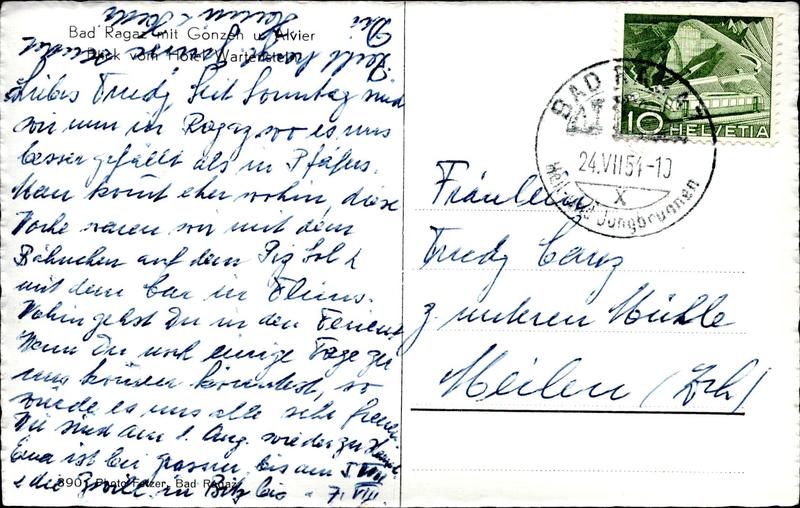 Bad Ragaz mit Gonzen u. Alvier
Blick vom Hotel Wartenstein
Liebes Trudy, Seit Sonntag sind
wir nun in Ragaz wo es uns
besser gefällt als in Pfäfers.
Man kommt eher wohin, diese
Woche waren wir mit dem
Bähnchen auf dem Piz Sol &
mit dem Car in Flims.
Wohin gehst Du in den Ferien?
Wenn Du noch einige Tage zu
uns kommen könntest, so
würde es uns alle sehr freuen.
Wir sind am 1. Aug. wieder zu Hause
ist bei bis am
& die in bis 7. VIII.
8901 Photo Fetzer, Bad Ragaz
HELVETIA
10
BAD RAGAZ
24.VII.54-10
X
Heil- und Jungbrunnen
Fräulein
Trudy
z. unteren Mühle
Meilen (Zch)